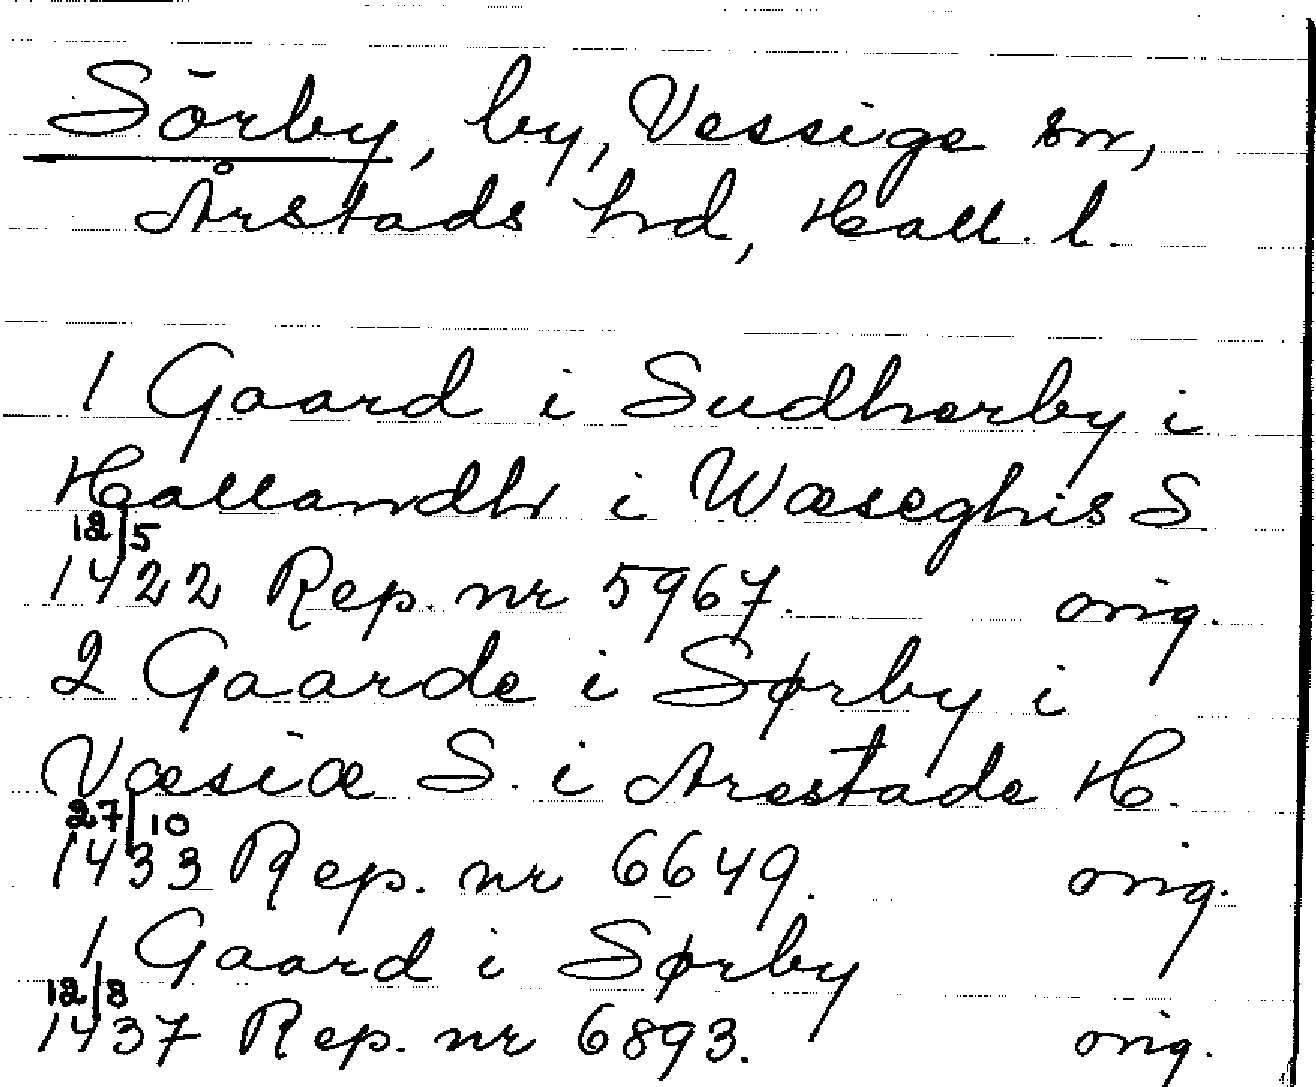 Sörby, by, Vessige sn,
Årstads hd, Hall. l.
1 Gaard i Sudhærby i
Hallandh i Wæseghis S
12/5
1422 Rep. nr 5967. orig.
2 Gaarde i Sørby i
Væsiæ S. i Arestade H.
27/10
1433 Rep. nr 6649. orig.
1 Gaard i Sørby
12/8
1437 Rep. nr 6893. orig.